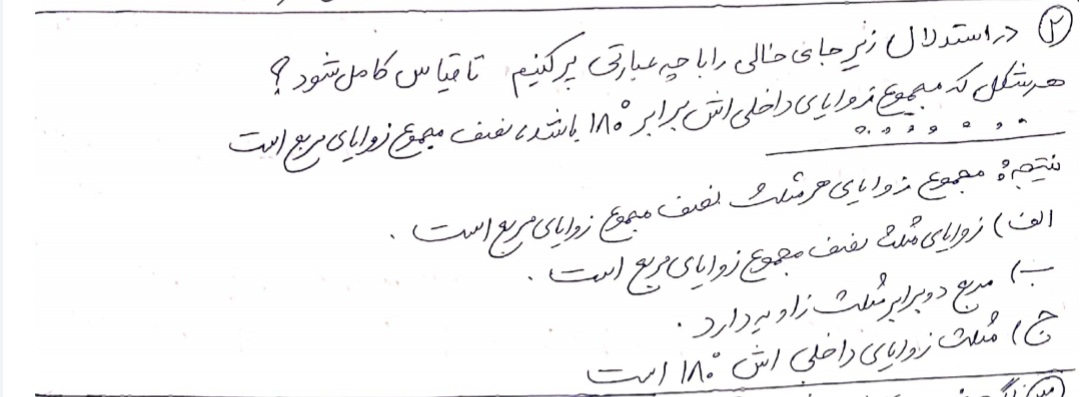 ۲) در استدلال زیر جای خالی را با چه عبارتی پر کنیم تا قیاس کامل شود؟
هر شکل که مجموع زوایای داخلی اش برابر ۱۸۰° باشد، نصف مجموع زوایای مربع است
. . . . . . . .
نتیجه: مجموع زوایای هر مثلث نصف مجموع زوایای مربع است.
الف) زوایای مثلث نصف مجموع زوایای مربع است.
ب) مربع دو برابر مثلث زاویه دارد.
ج) مثلث زوایای داخلی اش ۱۸۰° است